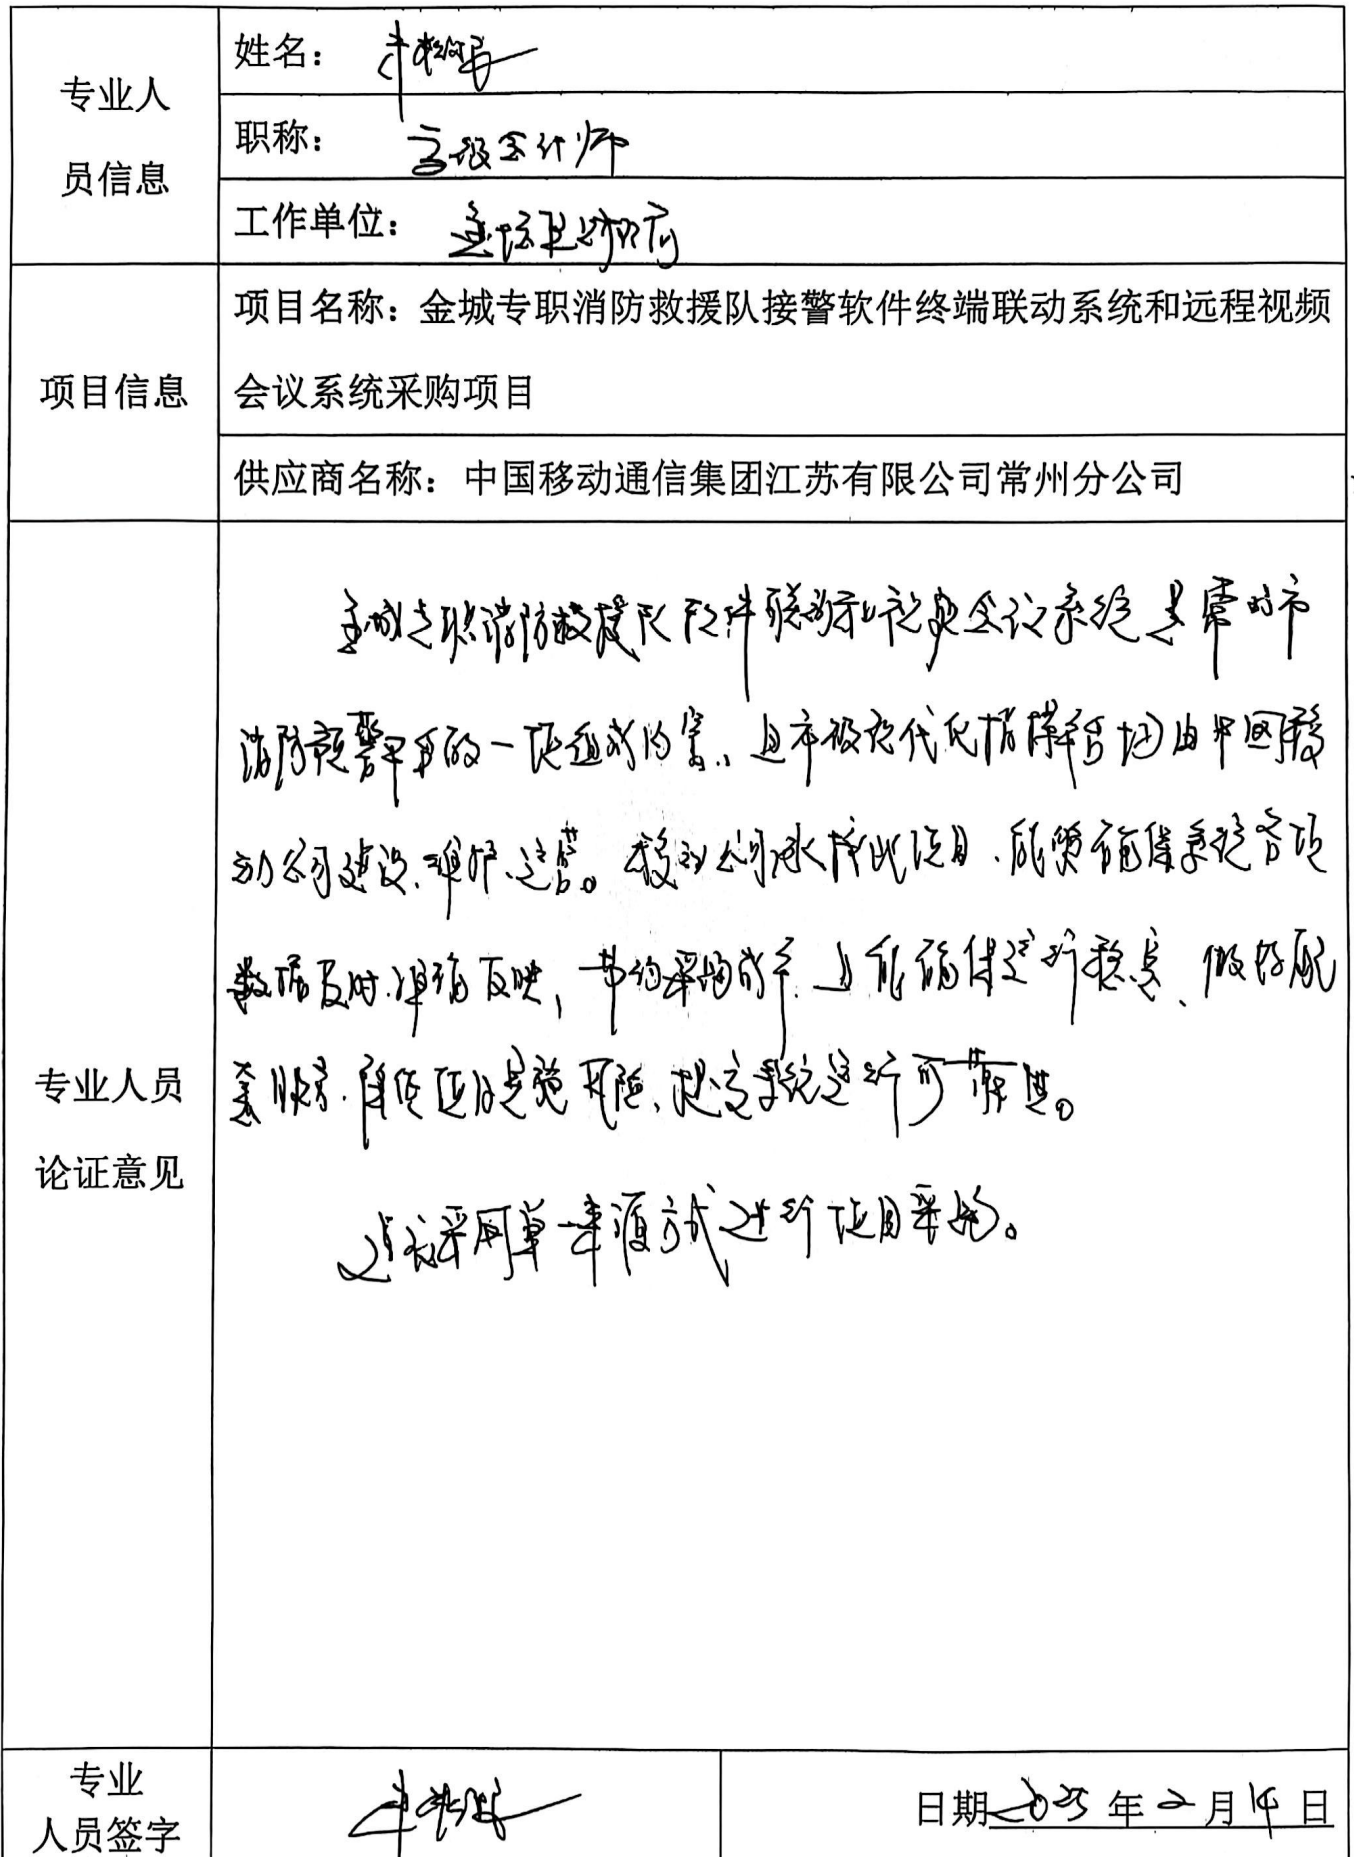 专业人
员信息
姓名：
职称：高级会计师
工作单位：金坛区财政局
项目信息
项目名称：金城专职消防救援队接警软件终端联动系统和远程视频
会议系统采购项目
供应商名称：中国移动通信集团江苏有限公司常州分公司
专业人员
论证意见
金城专职消防救援队软件联动和视频会议系统是常州市
消防接警平台的一项组成内容，且市级现代化指挥平台均由中国移
动公司建设、维护、运营。移动公司承接此项目，能够确保系统各项
数据及时、准确反映，节约采购成本，且能确保运行稳定、做好配
套服务，降低项目实施风险，提高系统运行可靠性。
建议采用单一来源方式进行项目采购。
专业
人员签字
日期2025年2月14日